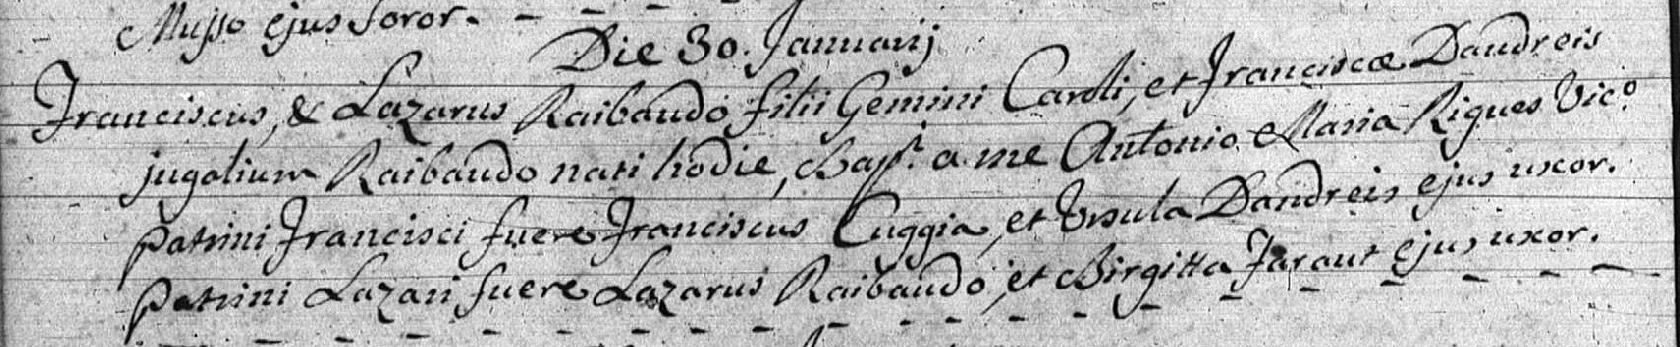 Musso ejus soror.
Die 30. Januarij
Franciscus, & Lazarus Raibaudo filii Gemini Caroli, et Franciscæ Dandreis
jugalium Raibaudo nati hodie, Bapt. a me Antonio Maria Riques Vico.
Patrini Francisci fuere Franciscus Cuggia, et Ursula Dandreis ejus uxor.
Patrini Lazari fuere Lazarus Raibaudo, et Birgitta Faraut ejus uxor.